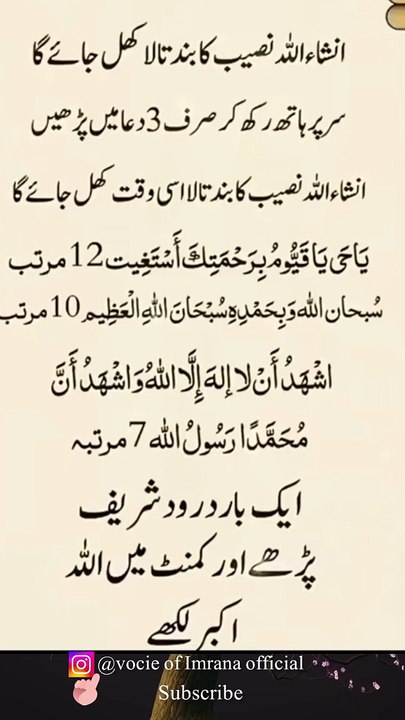 انشاء اللہ نصیب کا بند تالا کھل جائے گا
سر پر ہاتھ رکھ کر صرف 3 دعا میں پڑھیں
انشاء اللہ نصیب کا بند تالا اسی وقت کھل جائے گا
يَاحَى يَا قَيُّومُ بِرَحْمَتِكَ أَسْتَغِيت 12 مرتب
سُبحان الله وَبِحَمْدِهِ سُبْحَانَ اللهِ الْعَظِيم 10 مرتب
اشْهَدُ أَنْ لا إلهَ إِلَّا اللهُ وَاشْهَدُ أَنَّ
مُحَمَّدًا رَسُولُ الله 7 مرتبہ
ایک بار درود شریف
پڑھے اور کمنٹ میں اللہ
اکبر لکھے
@vocie of Imrana official
Subscribe